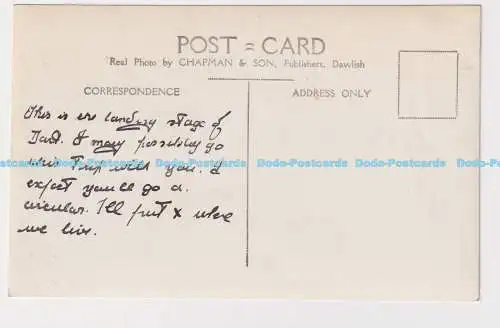 POST = CARD
Real Photo by CHAPMAN & SON, Publishers, Dawlish
CORRESPONDENCE
ADDRESS ONLY
This is the landing stage of
Dart. I may possibly go
this Trip with you. I
expect you'll go a
circular. I'll put x where
we live.
Dodo-Postcards Dodo-Postcards Dodo-Postcards Dodo-Postcards Dodo-Postcards